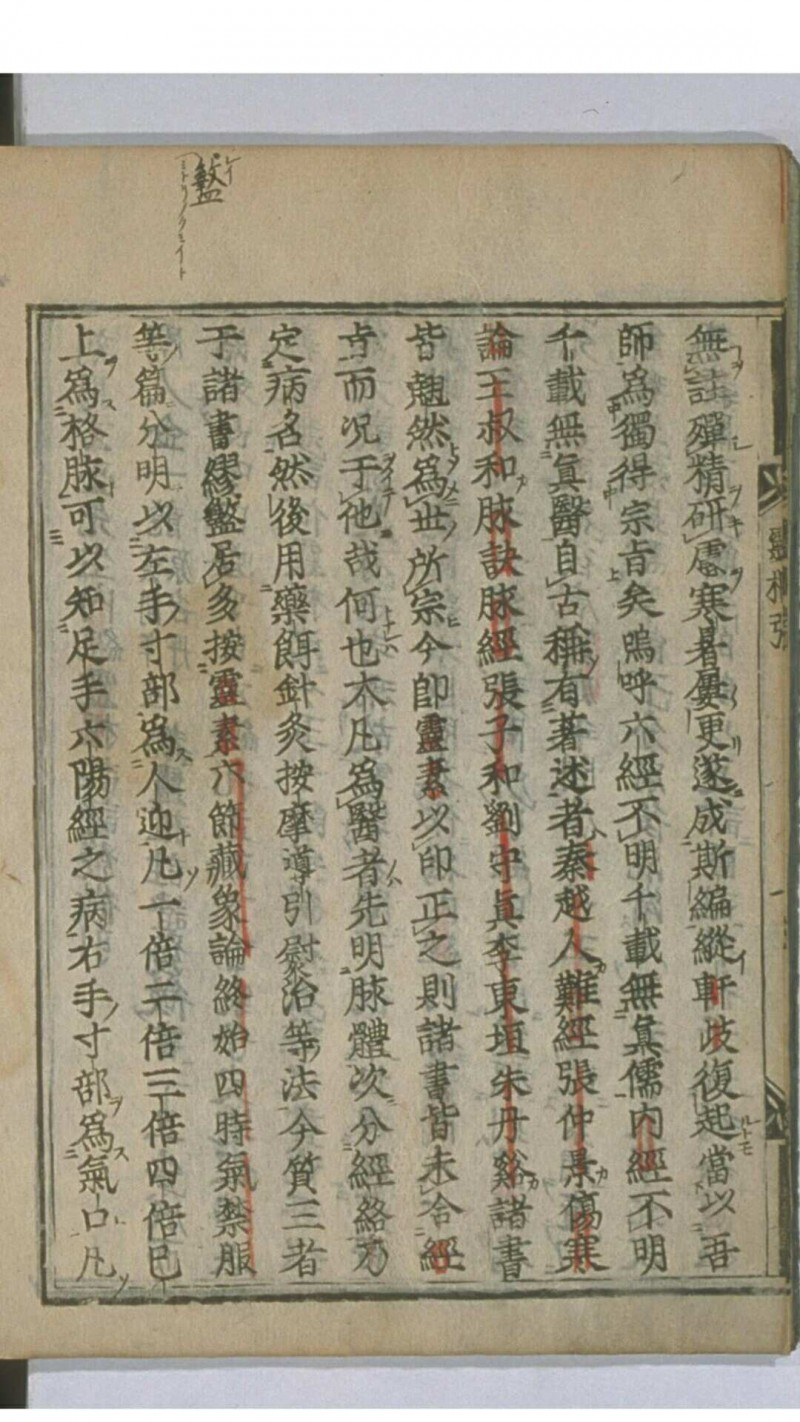 盭
無註殫精研慮寒暑屢更遂成斯編縱軒歧復起當以吾
師為獨得宗旨矣嗚呼六經不明千載無眞儒內經不明
千載無眞醫自古稱有著述者秦越人難經張仲景傷寒
論王叔和脉訣脉經張子和劉守眞李東垣朱丹谿諸書
皆翹然為世所宗今卽靈素以印正之則諸書皆未合經
旨而况于他哉何也大凡為醫者先明脉體次分經絡乃
定病名然後用藥餌針灸按摩導引熨治等法今質三者
于諸書繆盭居多按靈素六節藏象論終始四時氣禁服
等篇分明以左手寸部為人迎凡一倍二倍三倍四倍已
上為格脉可以知足手六陽經之病右手寸部為氣口凡